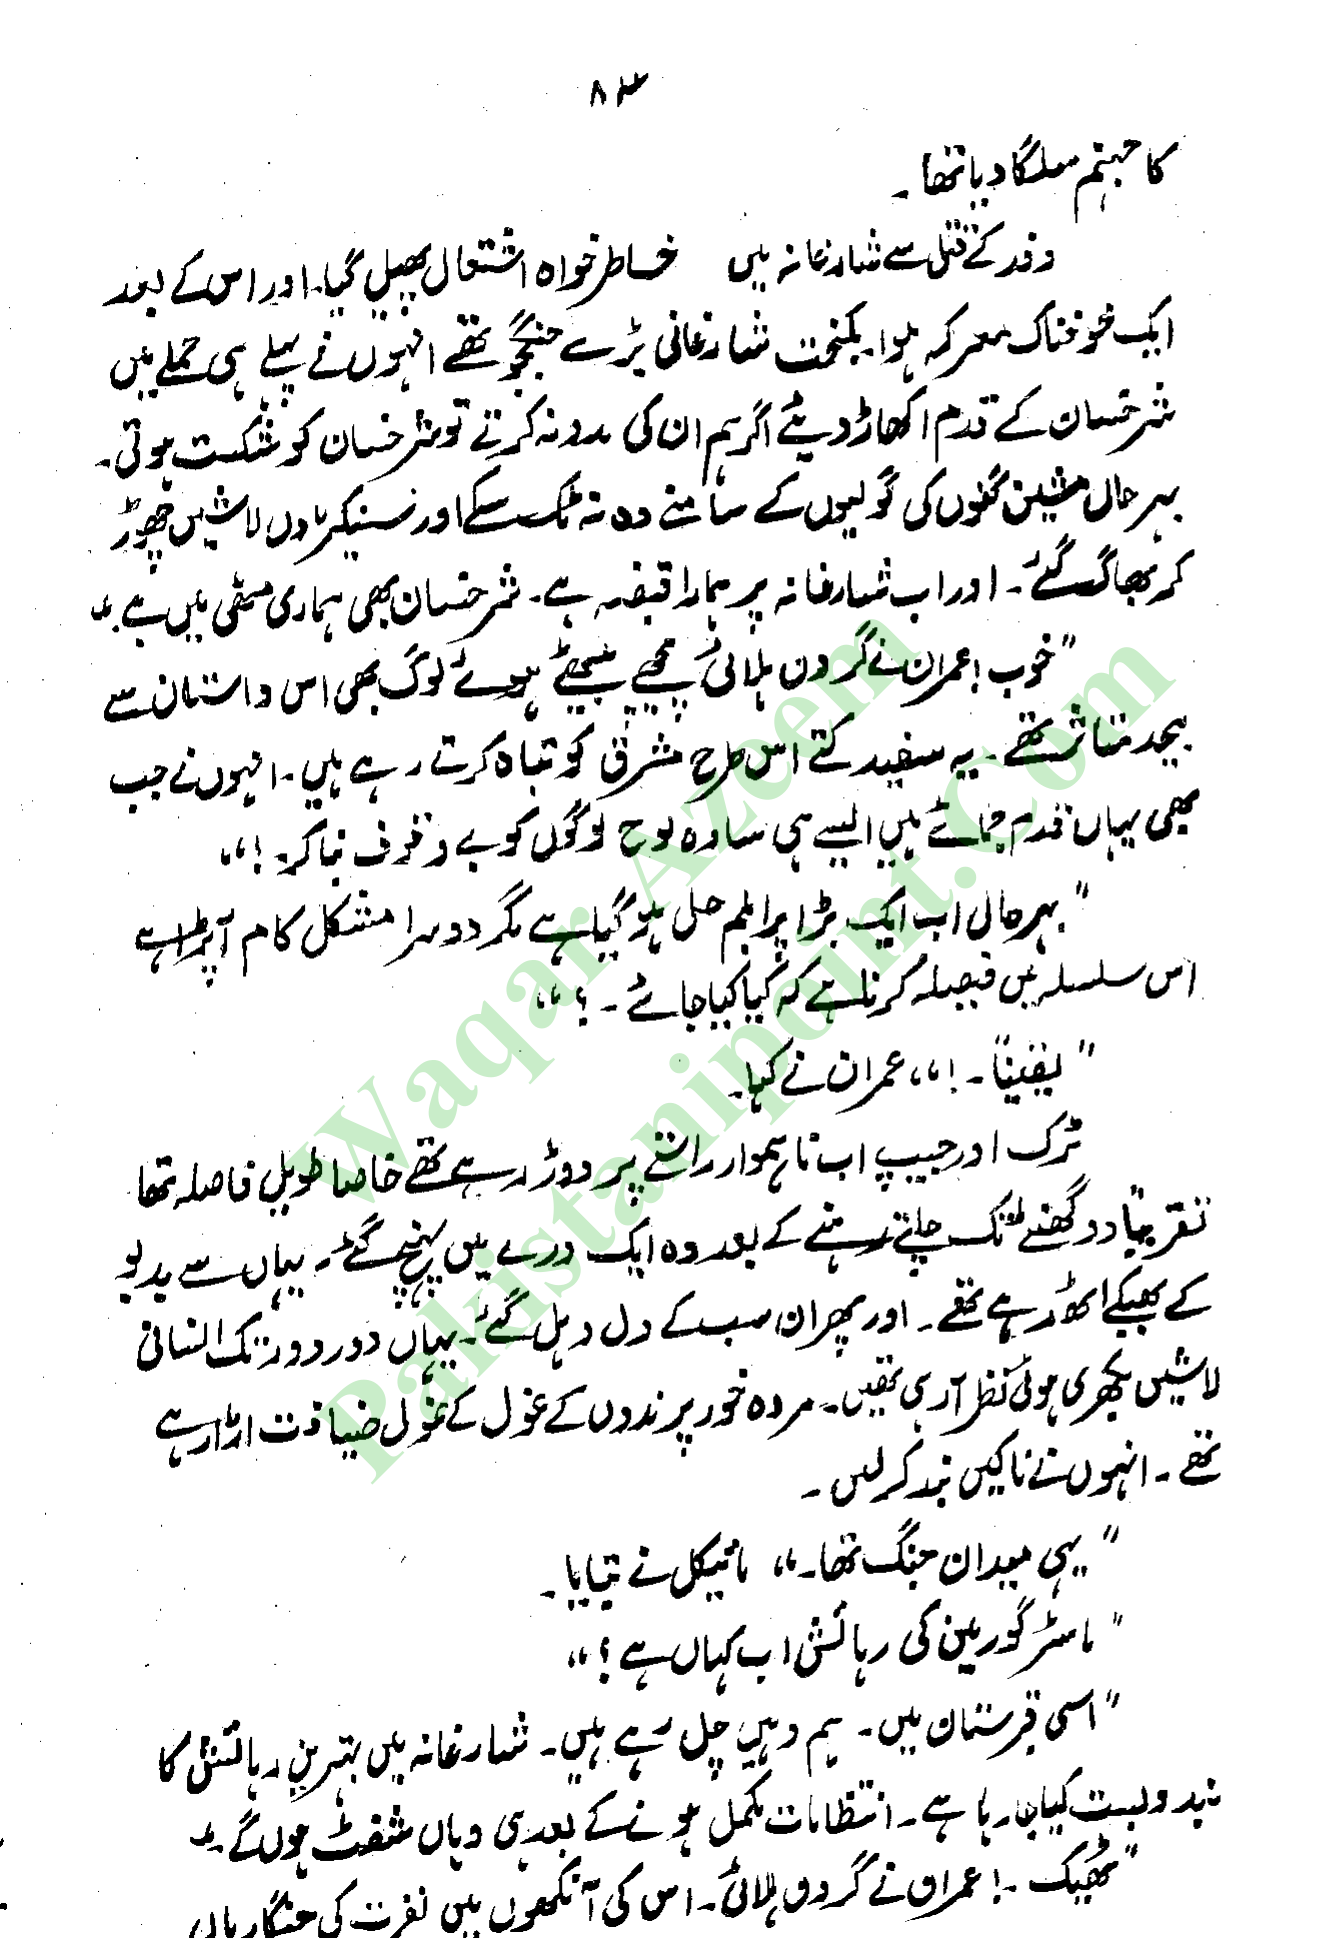 ۸۳
کا جہنم سلگا دیا تھا۔
وفد کے قتل سے شارغانہ میں خاطر خواہ اشتعال پھیل گیا۔ اور اس کے بعد
ایک خوفناک معرکہ ہوا۔ کمبخت شارغانی بڑے جنگجو تھے انہوں نے پہلے ہی حملے میں
شرخسان کے قدم اکھاڑ دیئے اگر ہم ان کی مدد نہ کرتے تو شرخسان کو شکست ہوتی۔
بہرحال مشین گنوں کی گولیوں کے سامنے وہ نہ ٹک سکے اور سینکڑوں لاشیں چھوڑ
کر بھاگ گئے۔ اور اب شارغانہ پر ہمارا قبضہ ہے۔ شرخسان بھی ہماری مٹھی میں ہے۔"
"خوب! عمران نے گردن ہلائی پیچھے بیٹھے ہوئے لوگ بھی اس داستان سے
بیحد متاثر تھے۔ یہ سفید کتے اس طرح مشرق کو تباہ کرتے رہے ہیں۔ انہوں نے جب
بھی یہاں قدم جمائے ہیں ایسے ہی سادہ لوح لوگوں کو بے وقوف بنا کر۔!"
"بہرحال اب ایک بڑا پرابلم حل ہو گیا ہے مگر دوسرا مشکل کام آپڑا ہے
اس سلسلہ میں فیصلہ کرنا ہے کہ کیا کیا جائے۔؟"
"یقیناً۔!" عمران نے کہا۔
ٹرک اور جیپ اب ناہموار راستے پر دوڑ رہے تھے خاصا طویل فاصلہ تھا
تقریباً دو گھنٹے تک چلتے رہنے کے بعد وہ ایک درے میں پہنچ گئے۔ یہاں سے بدبو
کے بھبکے اٹھ رہے تھے۔ اور پھر ان سب کے دل دہل گئے۔ یہاں دور دور تک انسانی
لاشیں بکھری ہوئی نظر آرہی تھیں۔ مردہ خور پرندوں کے غول کے غول ضیافت اڑا رہے
تھے۔ انہوں نے ناکیں بند کر لیں۔
"یہی میدان جنگ تھا۔" مائیکل نے بتایا۔
"ماسٹر گورین کی رہائش اب کہاں ہے؟"
"اسی قبرستان میں۔ ہم وہیں چل رہے ہیں۔ شارغانہ میں بہترین رہائش کا
بندوبست کیا جا رہا ہے۔ انتظامات مکمل ہونے کے بعد ہی وہاں شفٹ ہوں گے۔"
"ٹھیک۔! عمران نے گردن ہلائی۔ اس کی آنکھوں میں نفرت کی چنگاریاں
Waqar Azeem
Pakistanipoint.Com